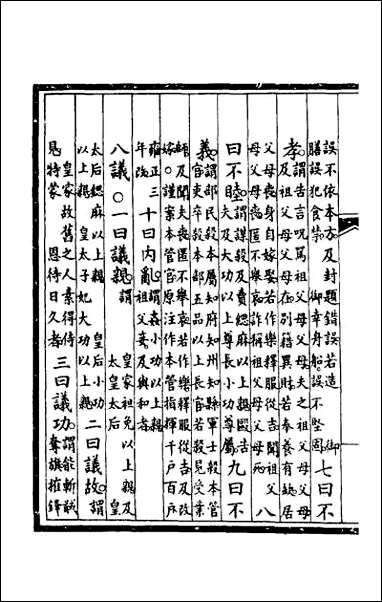 誤不依本方及封題錯誤若造 御
膳誤犯食禁 御幸舟船誤不堅固
七曰不
孝
謂告言咒罵祖父母父母夫之祖父母父母
及祖父母父母在別籍異財若奉養有缺居
父母喪身自嫁娶若作樂釋服從吉聞祖父
母父母喪匿不舉哀詐稱祖父母父母死
八
曰不睦
謂謀殺及賣緦麻以上親毆告
夫及大功以上尊長小功尊屬
九曰不
義
謂部民殺本屬知府知州知縣軍士殺本管
官吏卒殺本部五品以上長官若殺見受業
師及聞夫喪匿不舉哀若作樂釋服從吉及改
嫁○謹案本管官原注作本管指揮千戶百戶
雍正三
年改
十曰內亂
謂姦小功以上親
祖父妾及與和者
八議○一曰議親
謂 皇家袒免以上親及
太皇太后 皇
太后緦麻以上親 皇后小功
以上親 皇太子妃大功以上親
二曰議故
謂
皇家故舊之人素得侍
見特蒙 恩待日久者
三曰議功
謂能斬將
奪旗摧鋒